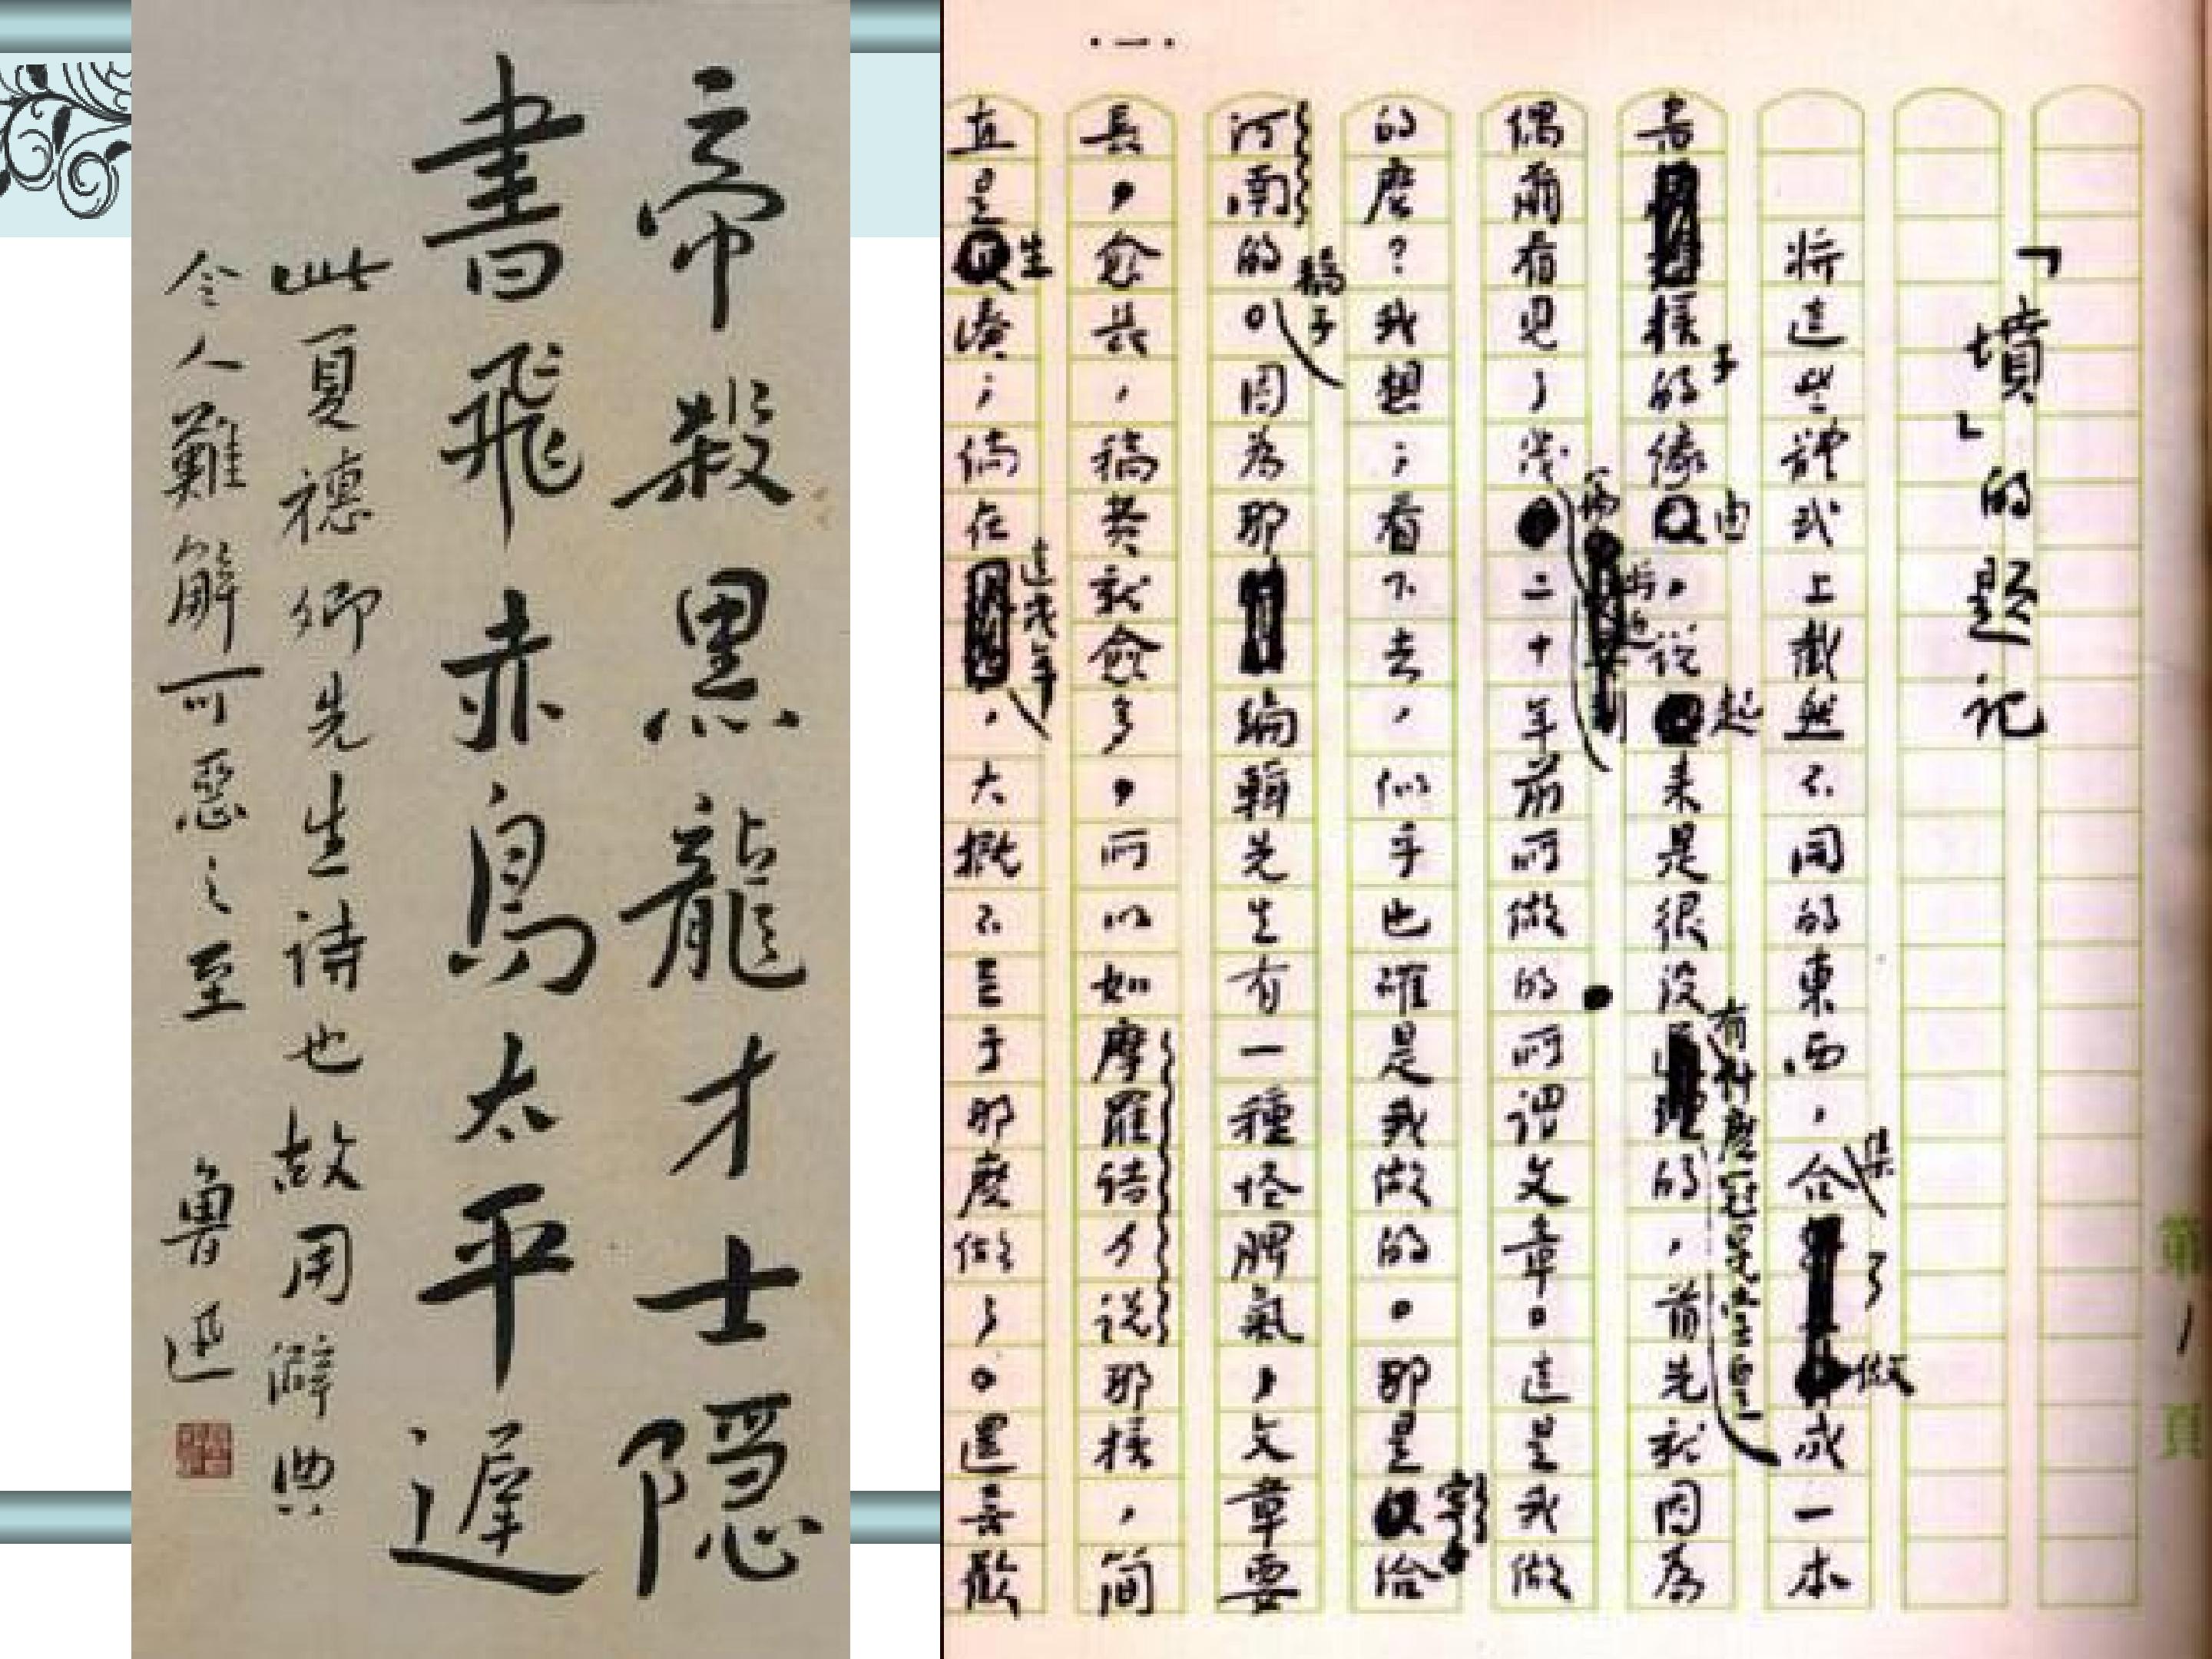 帝殺黑龍才士隱
書飛赤鳥太平遲
此夏穗卿先生詩也故用僻典
令人難解可惡之至 魯迅
·一·
「墳」的題記
將這些體式上截然不同的東西,合集了做成一本
書樣子的緣由,說起來是很沒有什麼冠冕堂皇的,首先就因為
偶爾看見了幾篇將近二十年前所做的所謂文章。這是我做
的麼?我想;看下去,似乎也確是我做的。那是寄給
河南的稿子。因為那編輯先生有一種怪脾氣,文章要
長,愈長,稿費就愈多。所以如摩羅詩力說那樣,簡
直是生湊;倘在這幾年,大概不至于那麼做了。還喜歡
第 頁